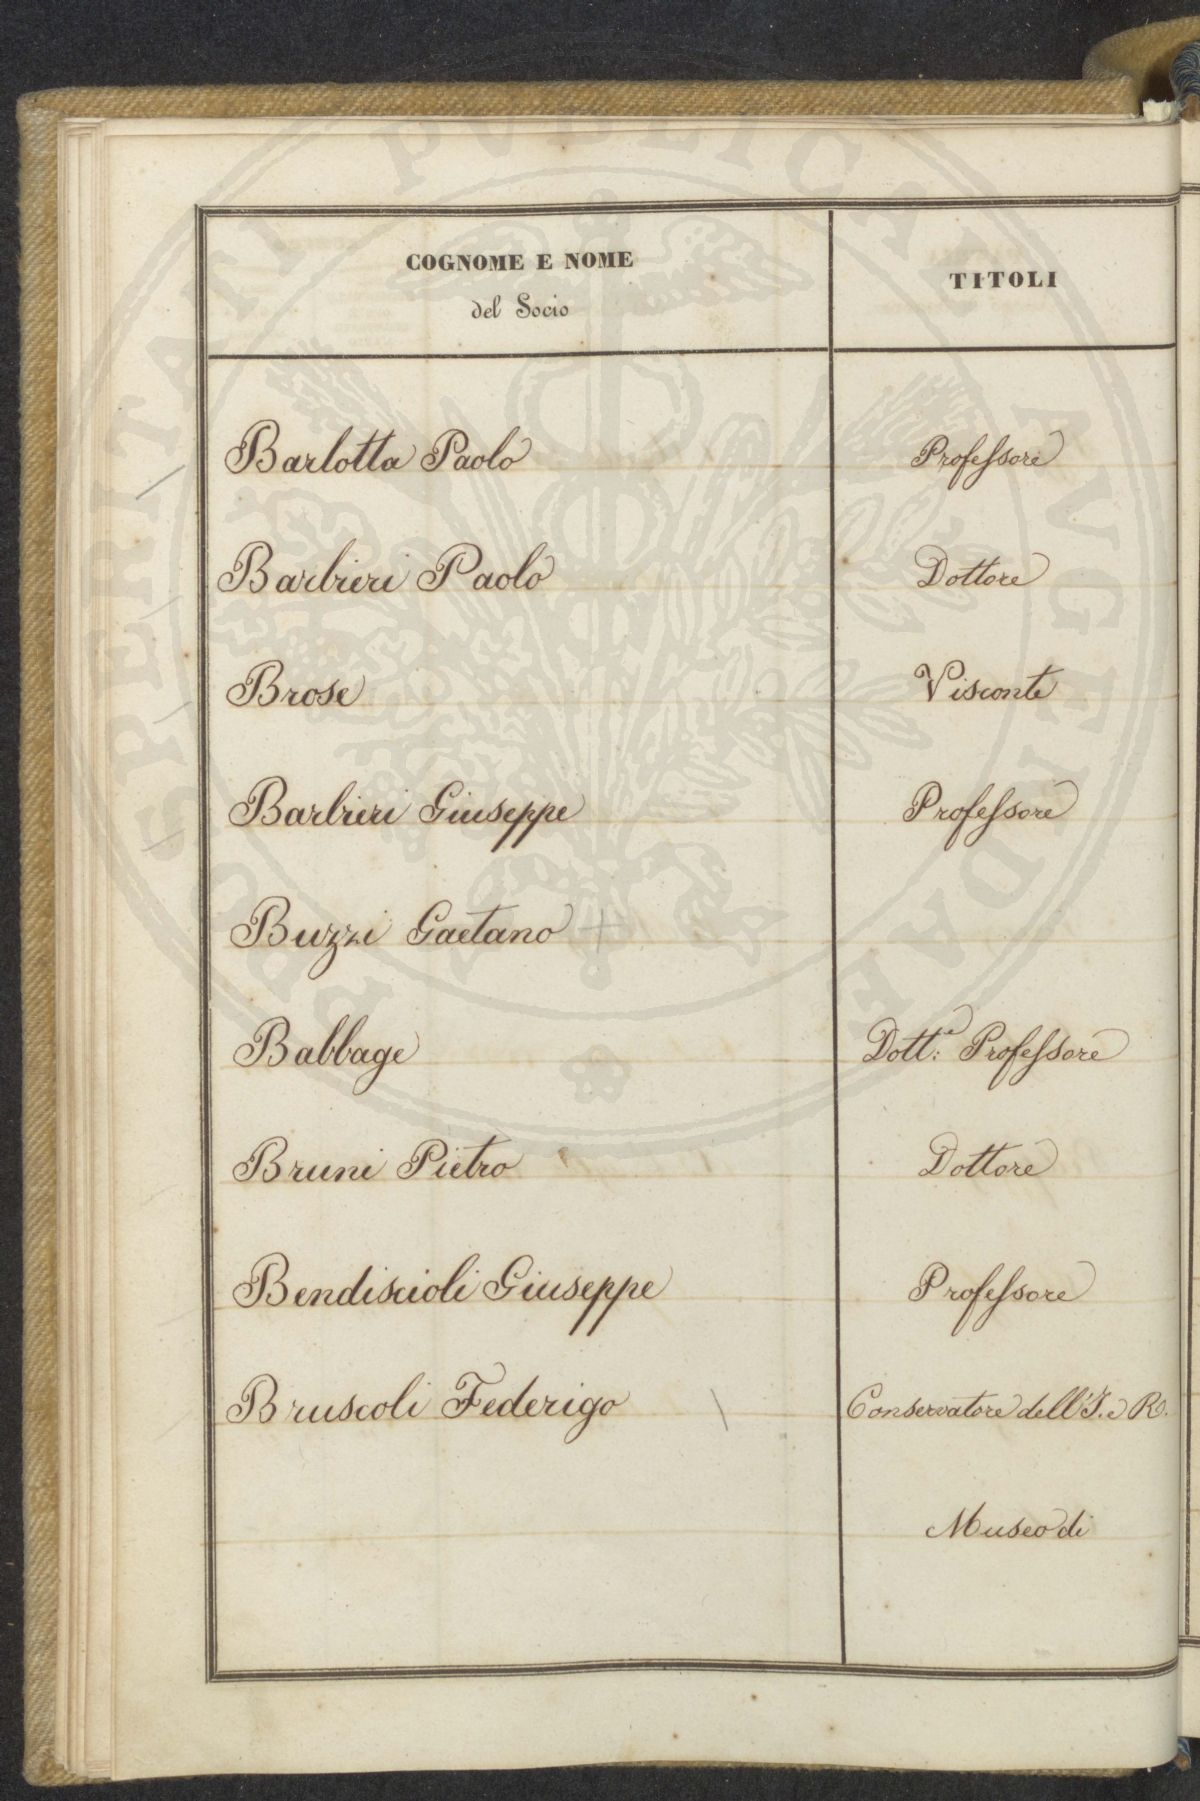 COGNOME E NOME
del Socio
TITOLI
Barlotta Paolo Professore
Barbieri Paolo Dottore
Brose Visconte
Barbieri Giuseppe Professore
Buzzi Gaetano
Babbage Dott:e Professore
Bruni Pietro Dottore
Bendiscioli Giuseppe Professore
Bruscoli Federigo Conservatore dell'I. e R.
Museo di
PROSPERITATI PVBLICAE AVGENDAE